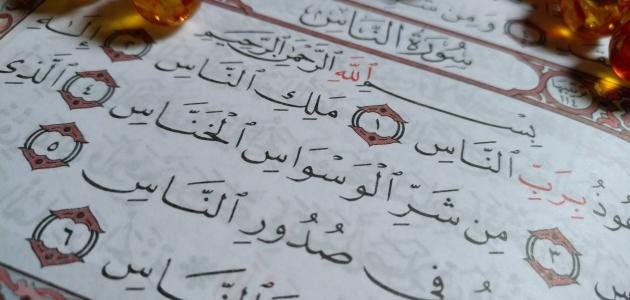 وَمِن
سُورَةُ النَّاسِ
بِسْمِ ٱللَّهِ ٱلرَّحْمَٰنِ ٱلرَّحِيمِ
عُوذُ بِرَبِّ ٱلنَّاسِ ١ مَلِكِ ٱلنَّاسِ ٢ إِلَٰهِ
سِ ٣ مِن شَرِّ ٱلْوَسْوَاسِ ٱلْخَنَّاسِ ٤ ٱلَّذِي
فِي صُدُورِ ٱلنَّاسِ ٥
ٱلنَّاسِ ٦